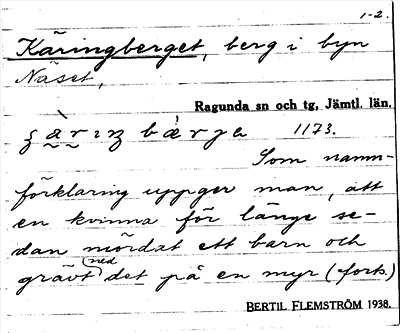 1-2.
Käringberget, berg i byn
Näset,
Ragunda sn och tg, Jämtl. län.
1173.
Som namn-
förklaring uppger man, att
en kvinna för länge se-
dan mördat ett barn och
grävt ned det på en myr (forts.)
BERTIL FLEMSTRÖM 1938.